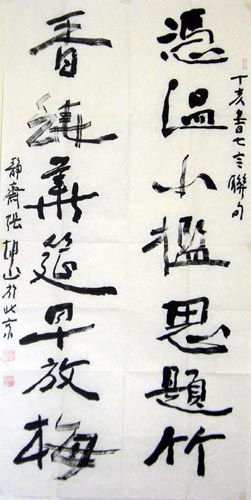 丁亥書七言聯句
憑温小檻思題竹
香繞華筵早放梅
靜齋張山於北京